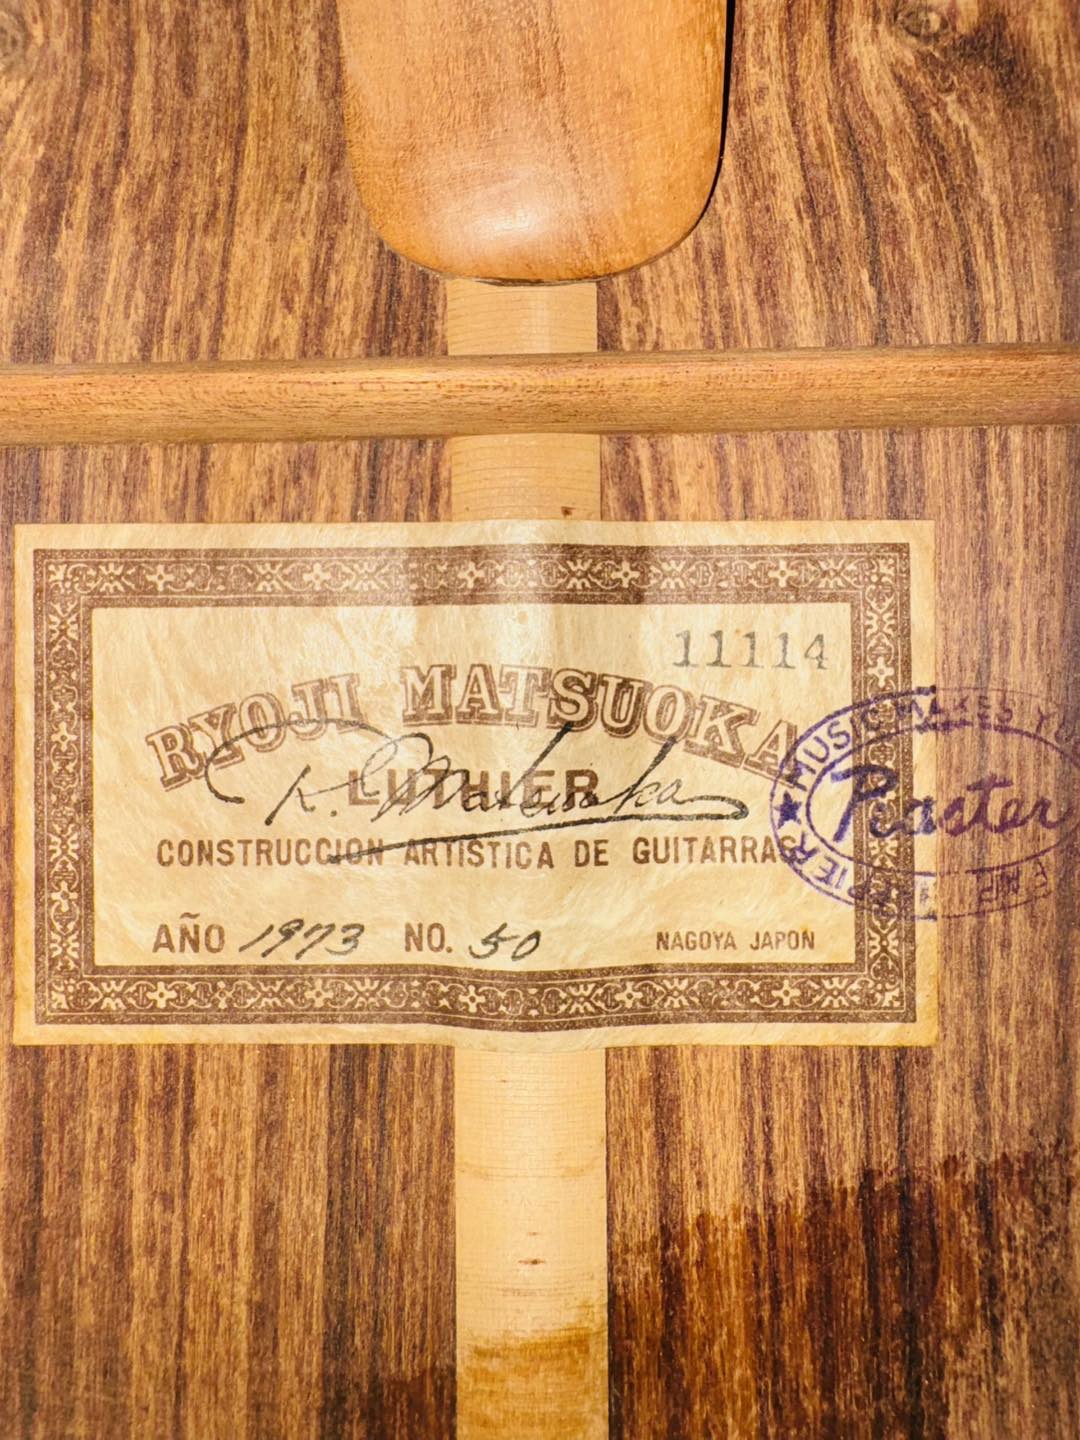 11114
RYOJI MATSUOKA
LUTHIER
R. Matsuoka
CONSTRUCCION ARTISTICA DE GUITARRAS
AÑO 1973 NO. 50 NAGOYA JAPON
MUSIC MAKES